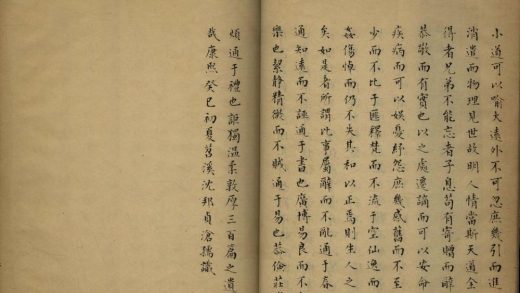 小道可以喻大遠外不可忍庶幾引而進
消遣而物理見世故明人情當斯天道全
得者兄弟不能忘者子息苟有寄贈而醉
恭敬而有實也以之處遷謫而可以安命
疾病而可以娛憂紓怨庶幾感舊而不至
少而不比于匪釋梵而不流于空仙逸而
傷悼而仍不失其和以正焉則生人之
矣如是者所謂比事屬辭而不亂通于春
通知遠而不誣通于書也廣博易良而不
樂也絜靜精微而不賊通于易也恭儉莊
煩通于禮也詎獨溫柔敦厚三百篇之遺
哉康熙癸巳初夏苕溪沈邦貞滄孺識